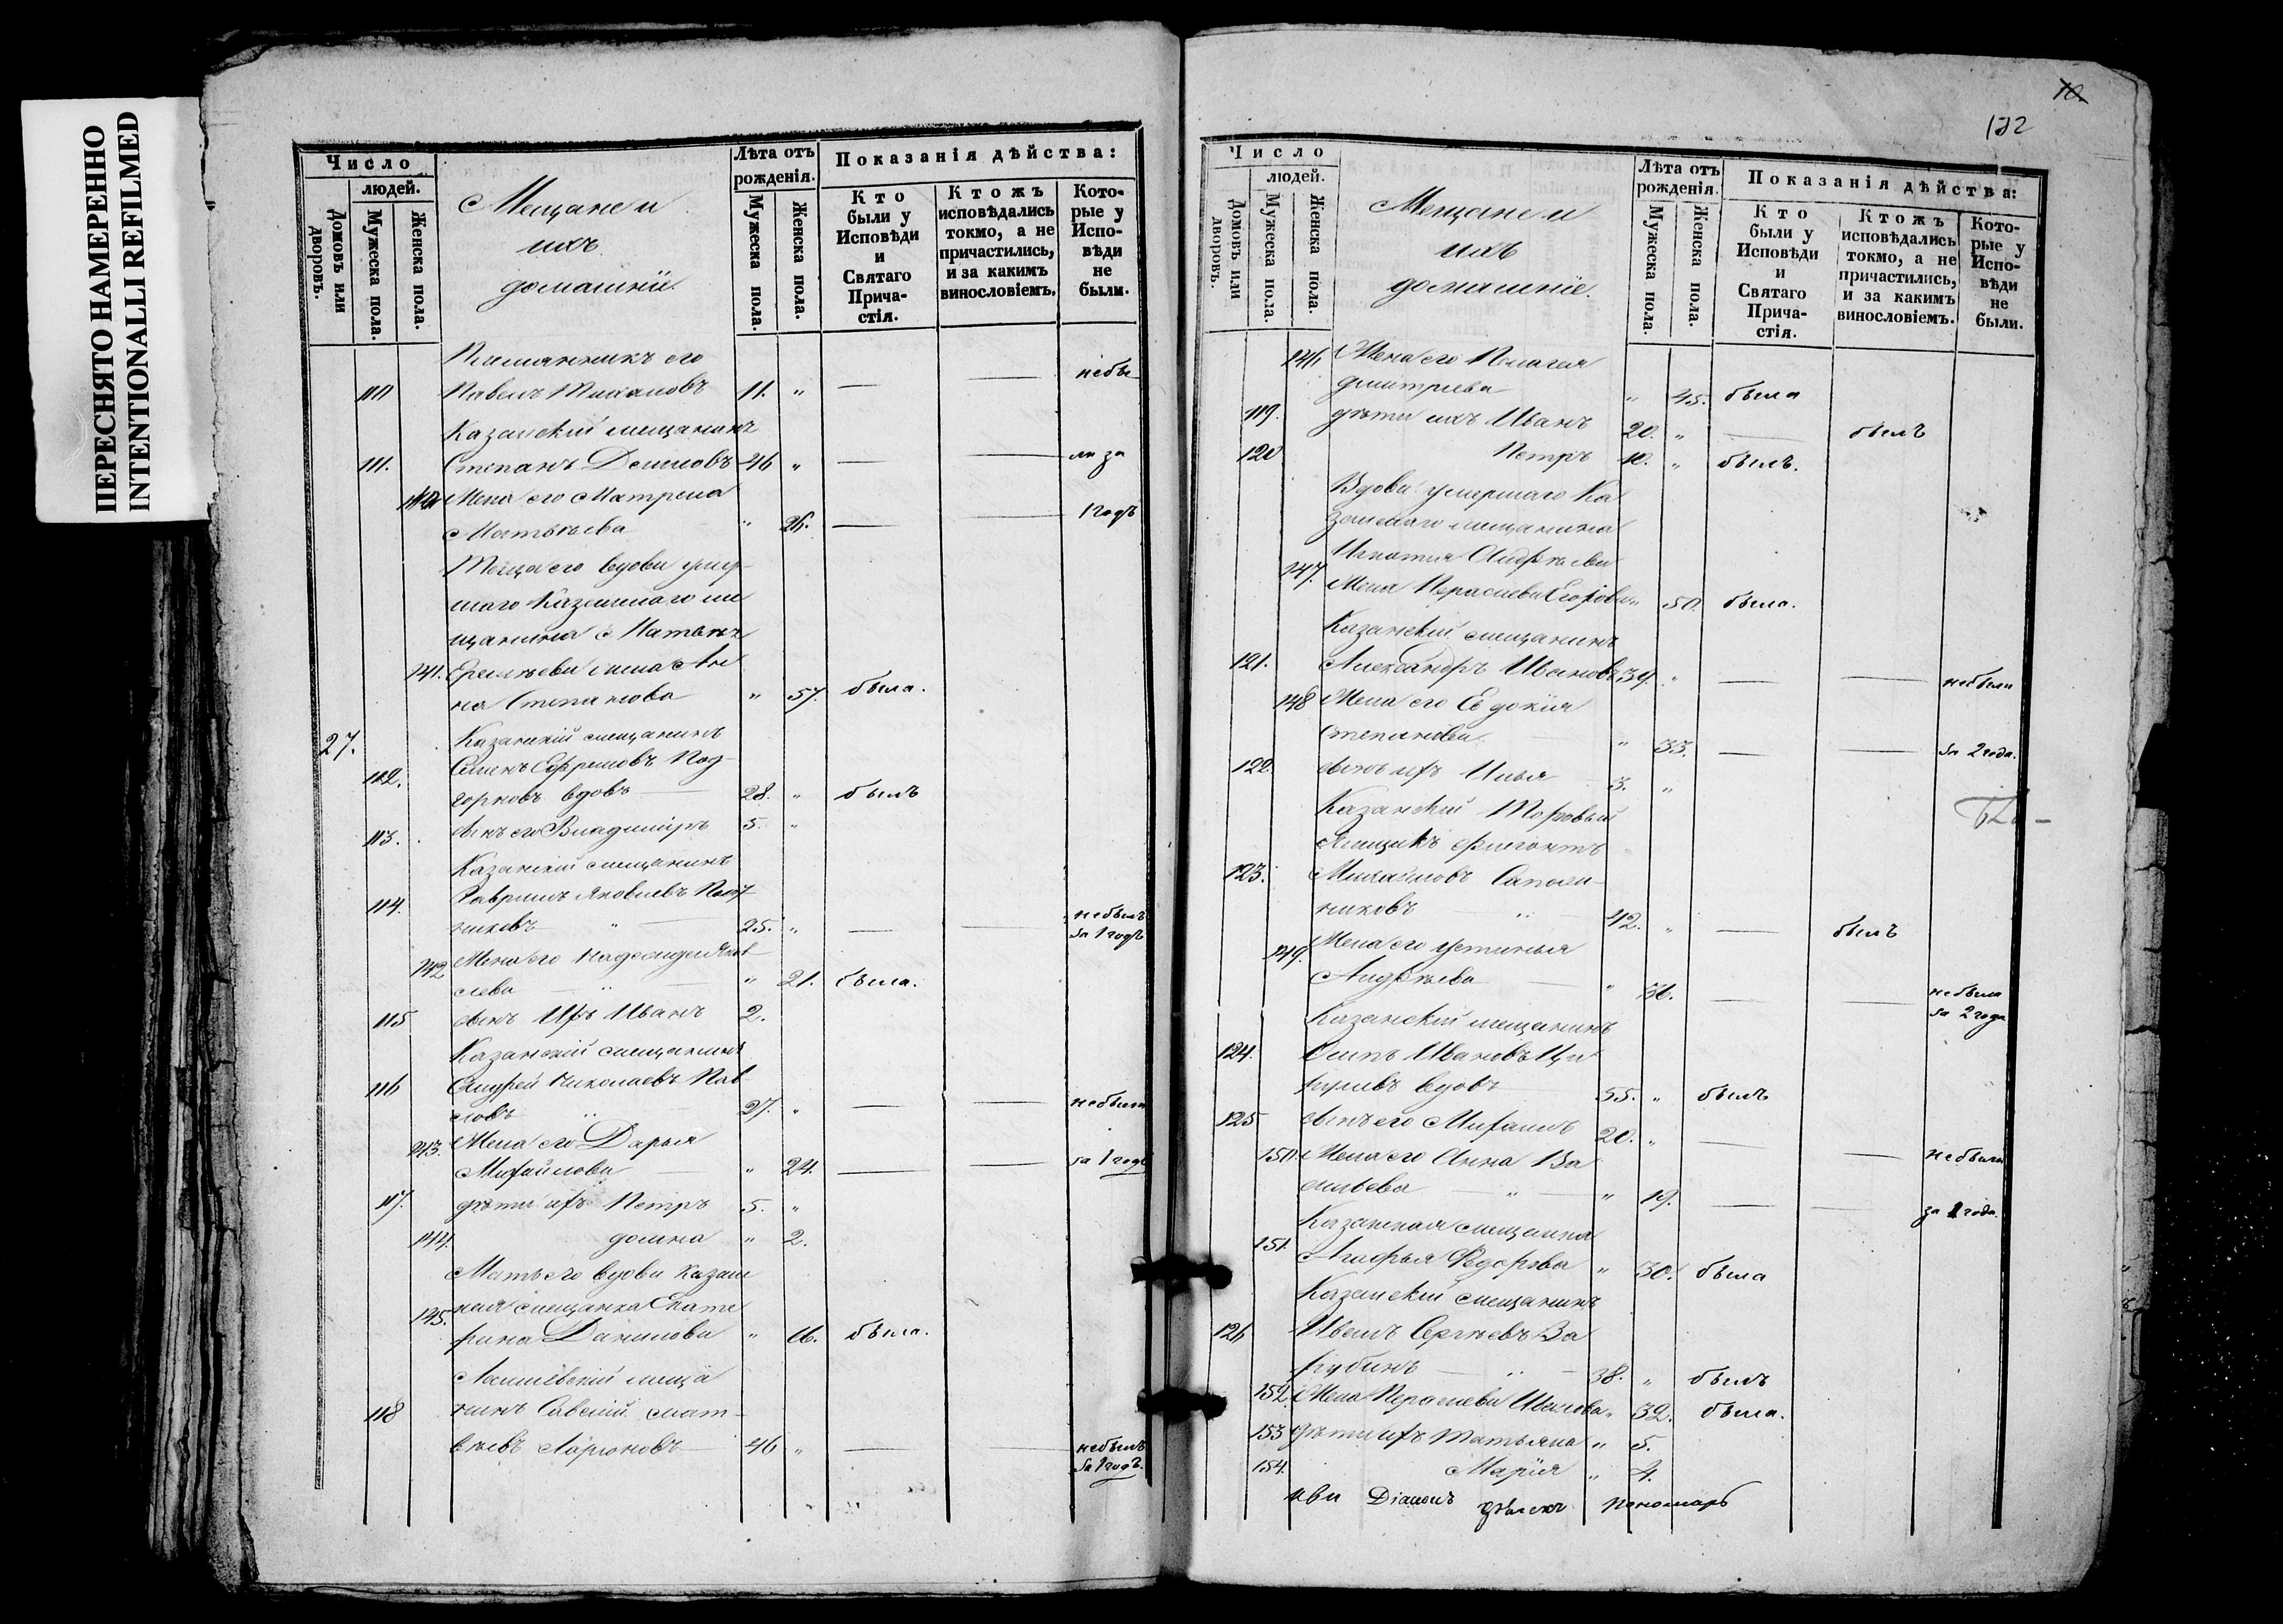 ПЕРЕСНЯТО НАМЕРЕННО
INTENTIONALLI REFILMED
Число
людей.
Домовъ или дворовъ.
Мужеска пола.
Женска пола.
Мещане и
ихъ
домашніе.
Лѣта отъ рожденія.
Мужеска пола.
Женска пола.
Показанія дѣйства:
Кто были у Исповѣди и Святаго Прича-стія.
Ктожъ исповѣдались токмо, а не причастились, и за какимъ винословіемъ.
Кото-рые у Испо-вѣди не были.
Племянникъ его
110 Павелъ 11. " — — небы
Казанскій мещанинъ
111. Степанъ 26 " — — ли за
Жена его Матрена
Матвѣева " 26. — — 1 годъ
Теща его вдова умер-
шаго Казанскаго ме
щанина Матвѣя
141. жена Ан
на Степанова " 57. была.
27. Казанскій мещанинъ
112. Ефремовъ Под-
горновъ вдовъ 28. " былъ
113. сынъ его Владиміръ 5. "
Казанскій мещанинъ
114. Гаврилъ Яковлевъ
никовъ " 25. " — — небылъ за 1 годъ
142 Жена его Надежда Яков-
лева " " 21. была.
115 сынъ Ихъ Иванъ 2.
Казанскій мещанинъ
116 Андрей Николаевъ Пав
ловъ " 27. " — — небыли
143. Жена его Дарья
Михайлова " 24. — — за 1 годъ
117. дѣти ихъ Петръ 5. "
144. домна " 2.
Мать его вдова Казан
145. ская мещанка Екате
рина Данилова " была.
Лаишевскій меща
118 нинъ Савелій Мат-
вѣевъ Ларіоновъ 46 " — небылъ за 1 годъ.
10
132
Число
людей.
Домовъ или дворовъ.
Мужеска пола.
Женска пола.
Мещане и
ихъ
домашніе.
Лѣта отъ рожденія.
Мужеска пола.
Женска пола.
Показанія дѣйства:
Кто были у Исповѣди и Святаго Прича-стія.
Ктожъ исповѣдались токмо, а не причастились, и за какимъ винословіемъ.
Кото-рые у Испо-вѣди не были.
146 Жена его Пелагея
Дмитріева " 45. была
119. дѣти ихъ Иванъ 20. " — былъ
120 Петръ 10. " былъ.
Вдова умершаго Ка
занскаго мещанина
Игнатія Андрѣева
147. Жена Парасковія Егорова " 50. была.
Казанскій мещанинъ
121. Александръ Ивановъ 39. " — — небыли
148 Жена его Евдокія
Степанова " 33. — — за 2 года.
122. сынъ ихъ Илья 3. "
Казанскій Торговый
123. Михайловъ Сапож-
никовъ " 42. " — былъ
149. Жена его Устинья
Андрѣева " 36. — — небыла за 2 года
Казанскій мещанинъ
124. Осипъ Ивановъ
вдовъ 55. " былъ
125 сынъ его Михаилъ 20. " —
150. Жена его Анна Ва — небыли
сильева " " 19. — — за 2 года.
Казанская мещанка
151. Агафья Федорова " 30. была
Казанскій мещанинъ
126 Иванъ Сергѣевъ За
рубинъ " 38. " былъ
152. Жена Парасковія Иванова " 32. была.
153 дѣти ихъ Татьяна " 5.
154. Марія " 4.
Діаконъ пономарь